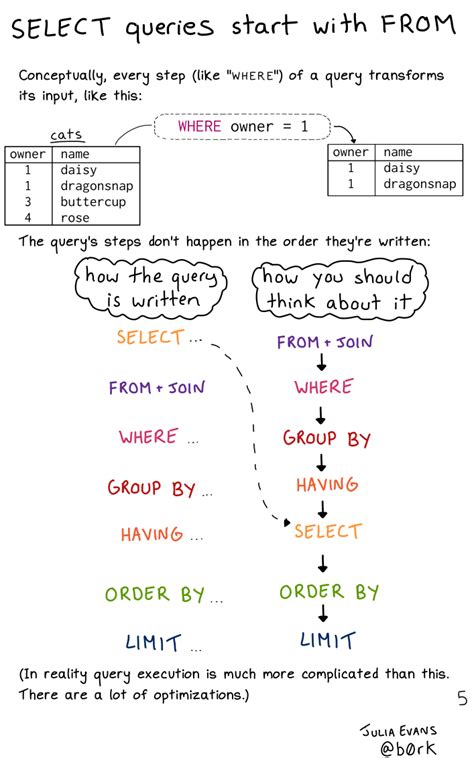 SELECT queries start with FROM
Conceptually, every step (like "WHERE") of a query transforms
its input, like this:
WHERE owner = 1
cats
owner name
1 daisy
1 dragonsnap
3 buttercup
4 rose
owner name
1 daisy
1 dragonsnap
The query's steps don't happen in the order they're written:
how the query
is written
SELECT ...
FROM + JOIN
WHERE ...
GROUP BY ...
HAVING ...
ORDER BY ...
LIMIT ...
how you should
think about it
FROM + JOIN
WHERE
GROUP BY
HAVING
SELECT
ORDER BY
LIMIT
(In reality query execution is much more complicated than this.
There are a lot of optimizations.)
5
JULIA EVANS
@b0rk